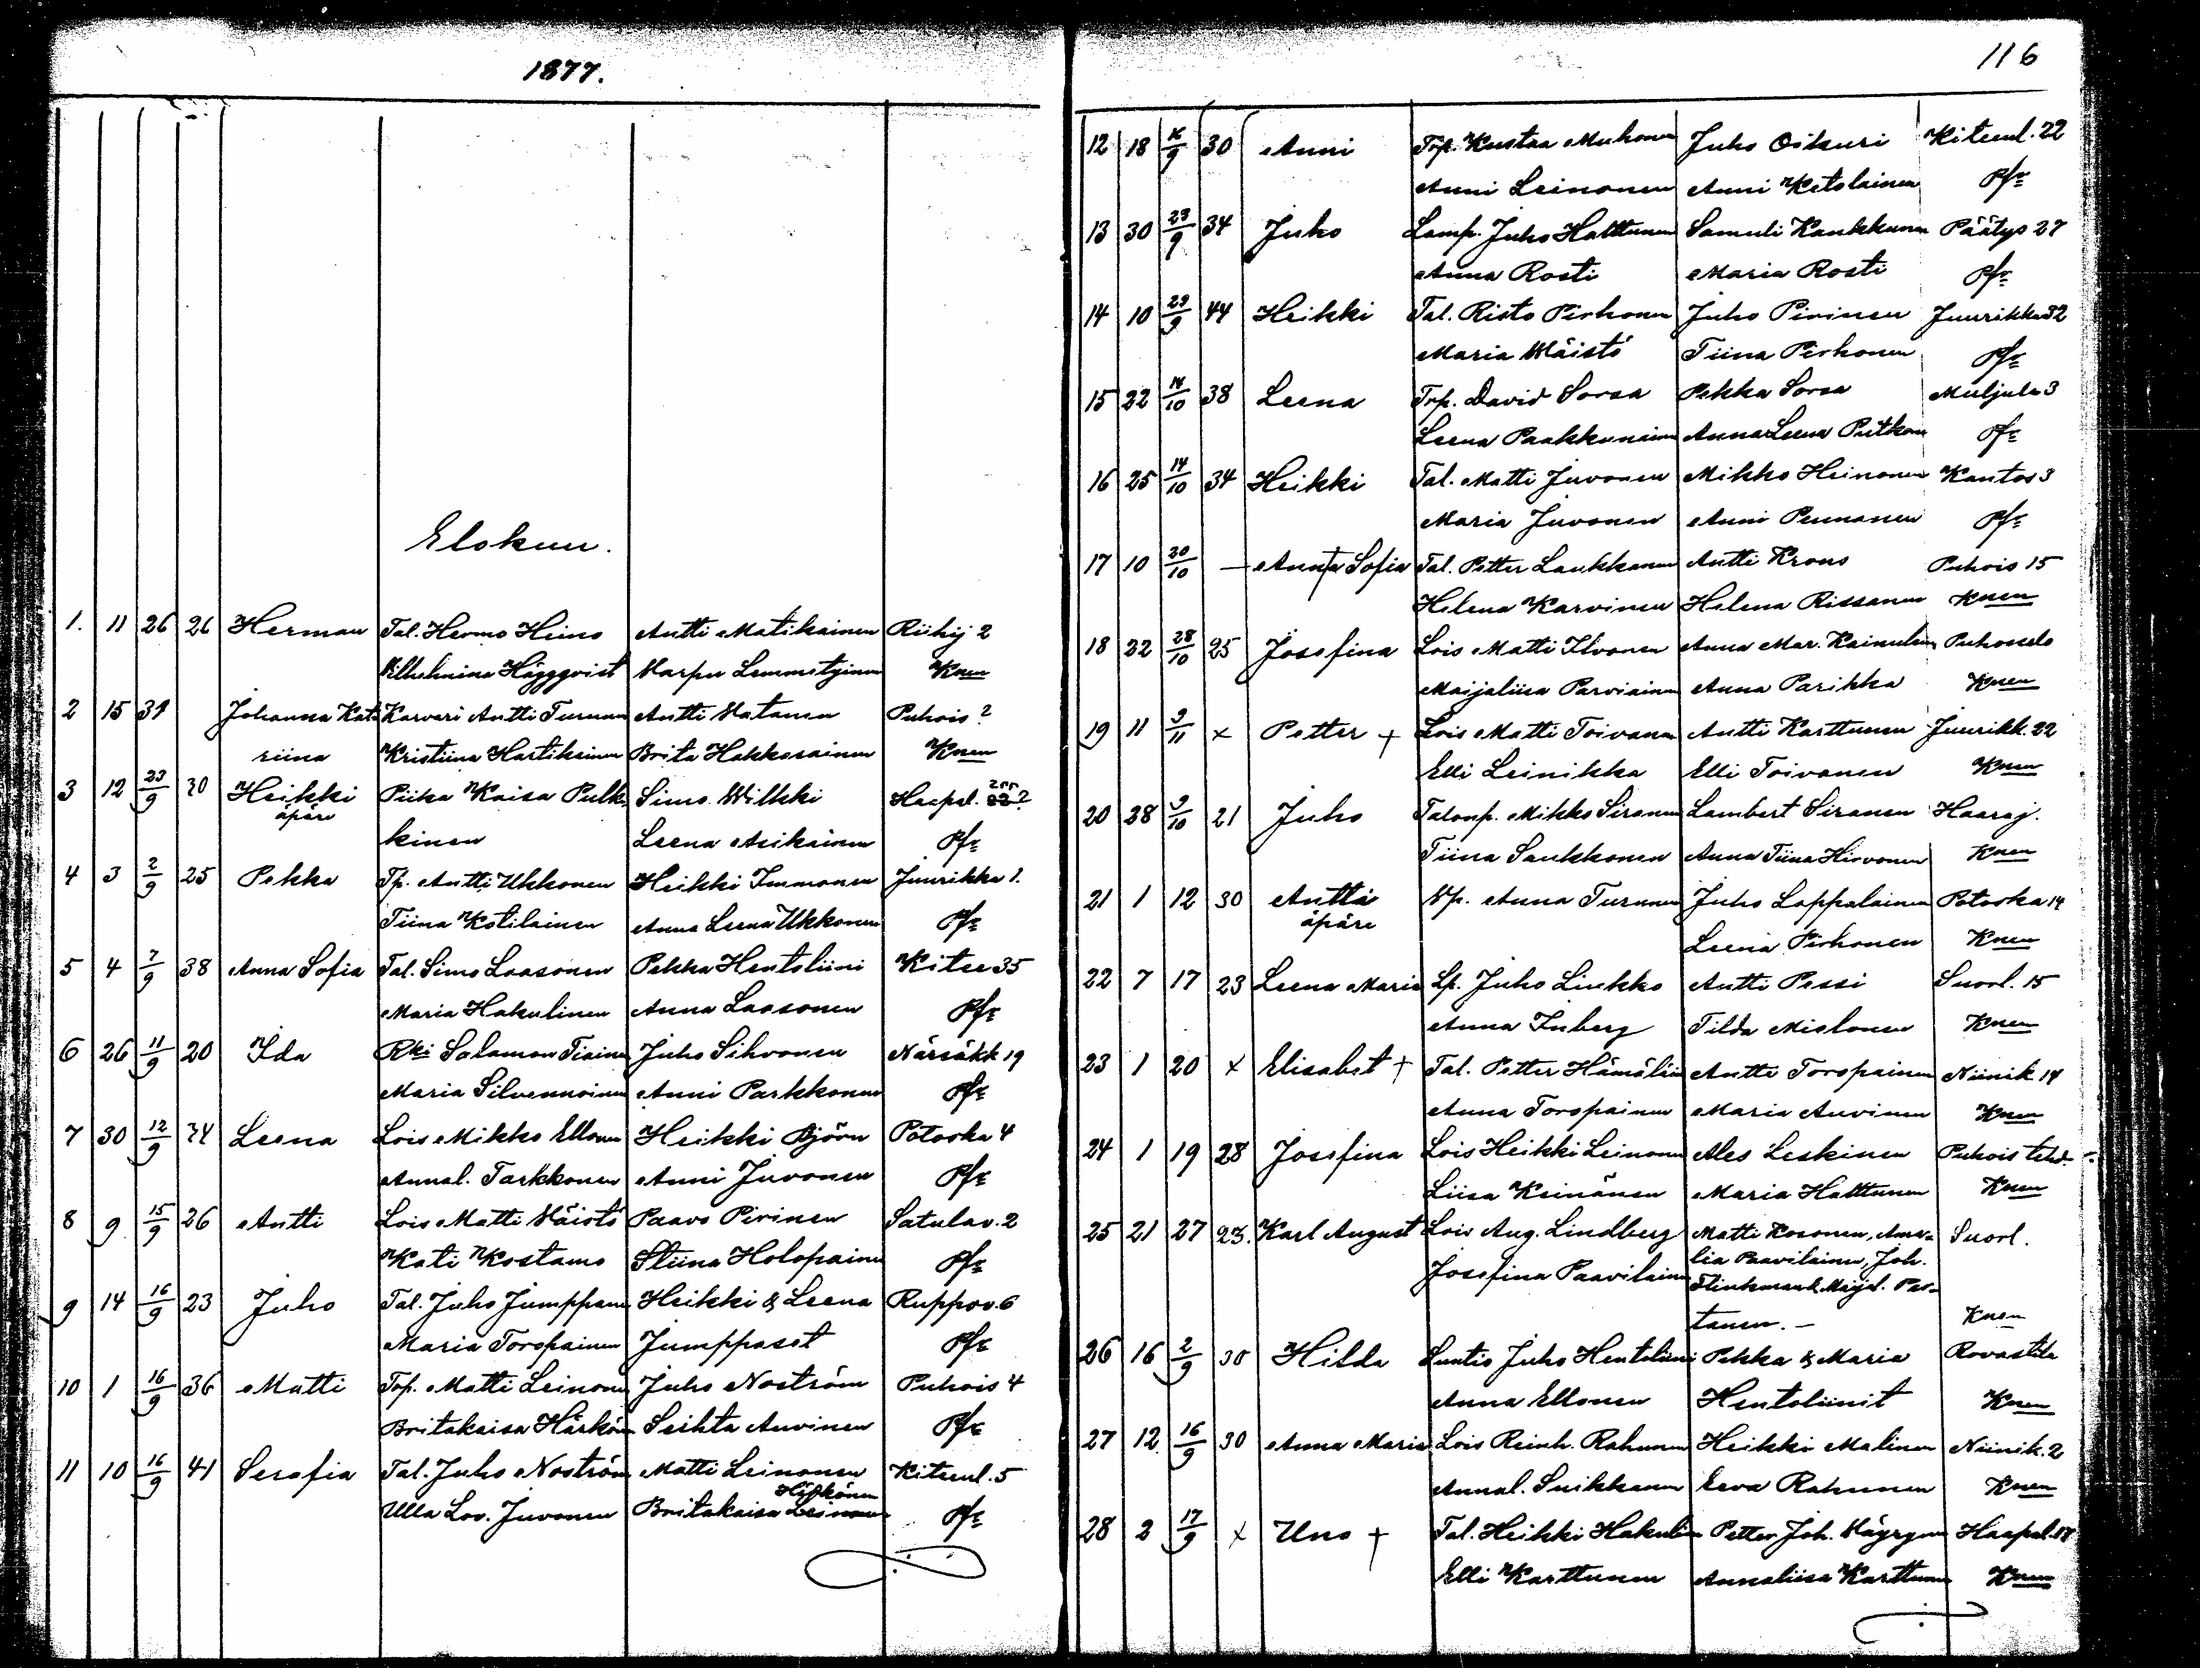 1877.
Elokuu.
1. 11 26 26 Herman Tal. Hermo Heino Antti Matikainen Riihij 2
Vilhelmina Häggqvist Varpu Lemmetyinen Knen
2 15 31 Johanna Kata Karvari Antti Turunen Antti Vatanen Puhois ?
riina Kristiina Hartikainen Brita Hakkarainen Knen
3 12 23/9 30 Heikki Piika Kaisa Pulk- Simo Wilkki Haapal. 22?
äpäre kinen Leena Asikainen Pfr
4 3 2/9 25 Pekka Tp. Antti Ukkonen Heikki Immonen Juurikka 1.
Tiina Kotilainen Anna Leena Ukkonen Pfr
5 4 7/9 38 Anna Sofia Tal. Simo Laasonen Pekka Hentoliini Kitee 35
Maria Hakulinen Anna Laasonen Pfr
6 26 11/9 20 Ida Rki Salamon Tiainen Juho Sihvonen Närsäkk 19
Maria Silvennoinen Anni Parkkonen Pfr
7 30 12/9 24 Leena Lois Mikko Ellonen Heikki Björn Potoska 4
Annal. Tarkkonen Anni Juvonen Pfr
8 9 15/9 26 Antti Lois Matti Väistö Paavo Pirinen Satulav. 2
Kati Kostamo Stiina Holopainen Pfr
9 14 16/9 23 Juho Tal. Juho Jumppanen Heikki & Leena Ruppov. 6
Maria Toropainen Jumppaset Pfr
10 1 16/9 36 Matti Trp. Matti Leinonen Juho Noström Puhois 4
Britakaisa Härkön Seihta Auvinen Pfr
11 10 16/9 41 Serafia Tal. Juho Noström Matti Leinonen Kiteenl. 5
Härkönen
Ulla Lov. Juvonen Britakaisa Leinonen Pfr
116
12 18 /9 30 Anni Trp. Kustaa Muhonen Juho Oikuri Kiteenl. 22
Anni Leinonen Anni Ketolainen Pfr
13 30 23/9 34 Juho Lamp. Juho Halttunen Samuli Kaukkunen Päätys 27
Anna Rosti Maria Rosti Pfr
14 10 23/9 44 Heikki Tal. Risto Pirhonen Juho Pirinen Juurikka 32
Maria Väistö Tiina Pirhonen Pfr
15 22 14/10 38 Leena Trp. David Sorsa Pekka Sorsa Muljula 3
Leena Paakkunainen Anna Leena Putkon Pfr
16 25 14/10 34 Heikki Tal. Matti Juvonen Mikko Heinonen Kantos 3
Maria Juvonen Anni Pennanen Pfr
17 10 20/10 — Anna Sofia Tal. Petter Laukkanen Antti Krous Puhois 15
Helena Karvinen Helena Rissanen Knen
18 22 28/10 25 Josefina Lois Matti Ilvonen Anna Mar. Kainulain Puhoselo
Maijaliisa Parviainen Anna Parikka Knen
19 11 9/11 x Petter + Lois Matti Toivanen Antti Karttunen Juurikk. 22
Elli Leinikka Elli Toivanen Knen
20 28 9/10 21 Juho Talonp. Mikko Siranen Lambert Siranen Haaraj.
Tiina Saukkonen Anna Tiina Hirvonen Knen
21 1 12 30 Antti Np. Anna Turunen Juho Lappalainen Potoska 14
äpäre Leena Pirhonen Knen
22 7 17 23 Leena Maria Lp. Juho Liukko Antti Pessi Suorl. 15
Anna Inberg Tilda Mielonen Knen
23 1 20 x Elisabet + Tal. Petter Hämäläin Antti Toropainen Niinik 14
Anna Toropainen Maria Auvinen Knen
24 1 19 28 Josefina Lois Heikki Leinonen Ales Leskinen Puhois tehd.
Liisa Keinänen Maria Halttunen Knen
25 21 27 23. Karl August Lois Aug. Lindberg Matti Kosonen, Ama- Suorl.
Josefina Paavilainen lia Paavilainen, Joh.
Flinkmank Maijal. Par-
tanen. — Knen
26 16 2/9 30 Hilda Suntio Juho Hentoliini Pekka & Maria Rovastila
Anna Ellonen Hentoliinit Knen
27 12 16/9 30 Anna Maria Lois Reinh. Rahunen Heikki Malinen Niinik. 2
Annal. Suikkanen Eeva Rahunen Knen
28 2 17/9 x Uno + Tal. Heikki Hakulin Petter Joh. Väyrynen Haapal. 18
Elli Karttunen Annaliisa Karttunen Knen